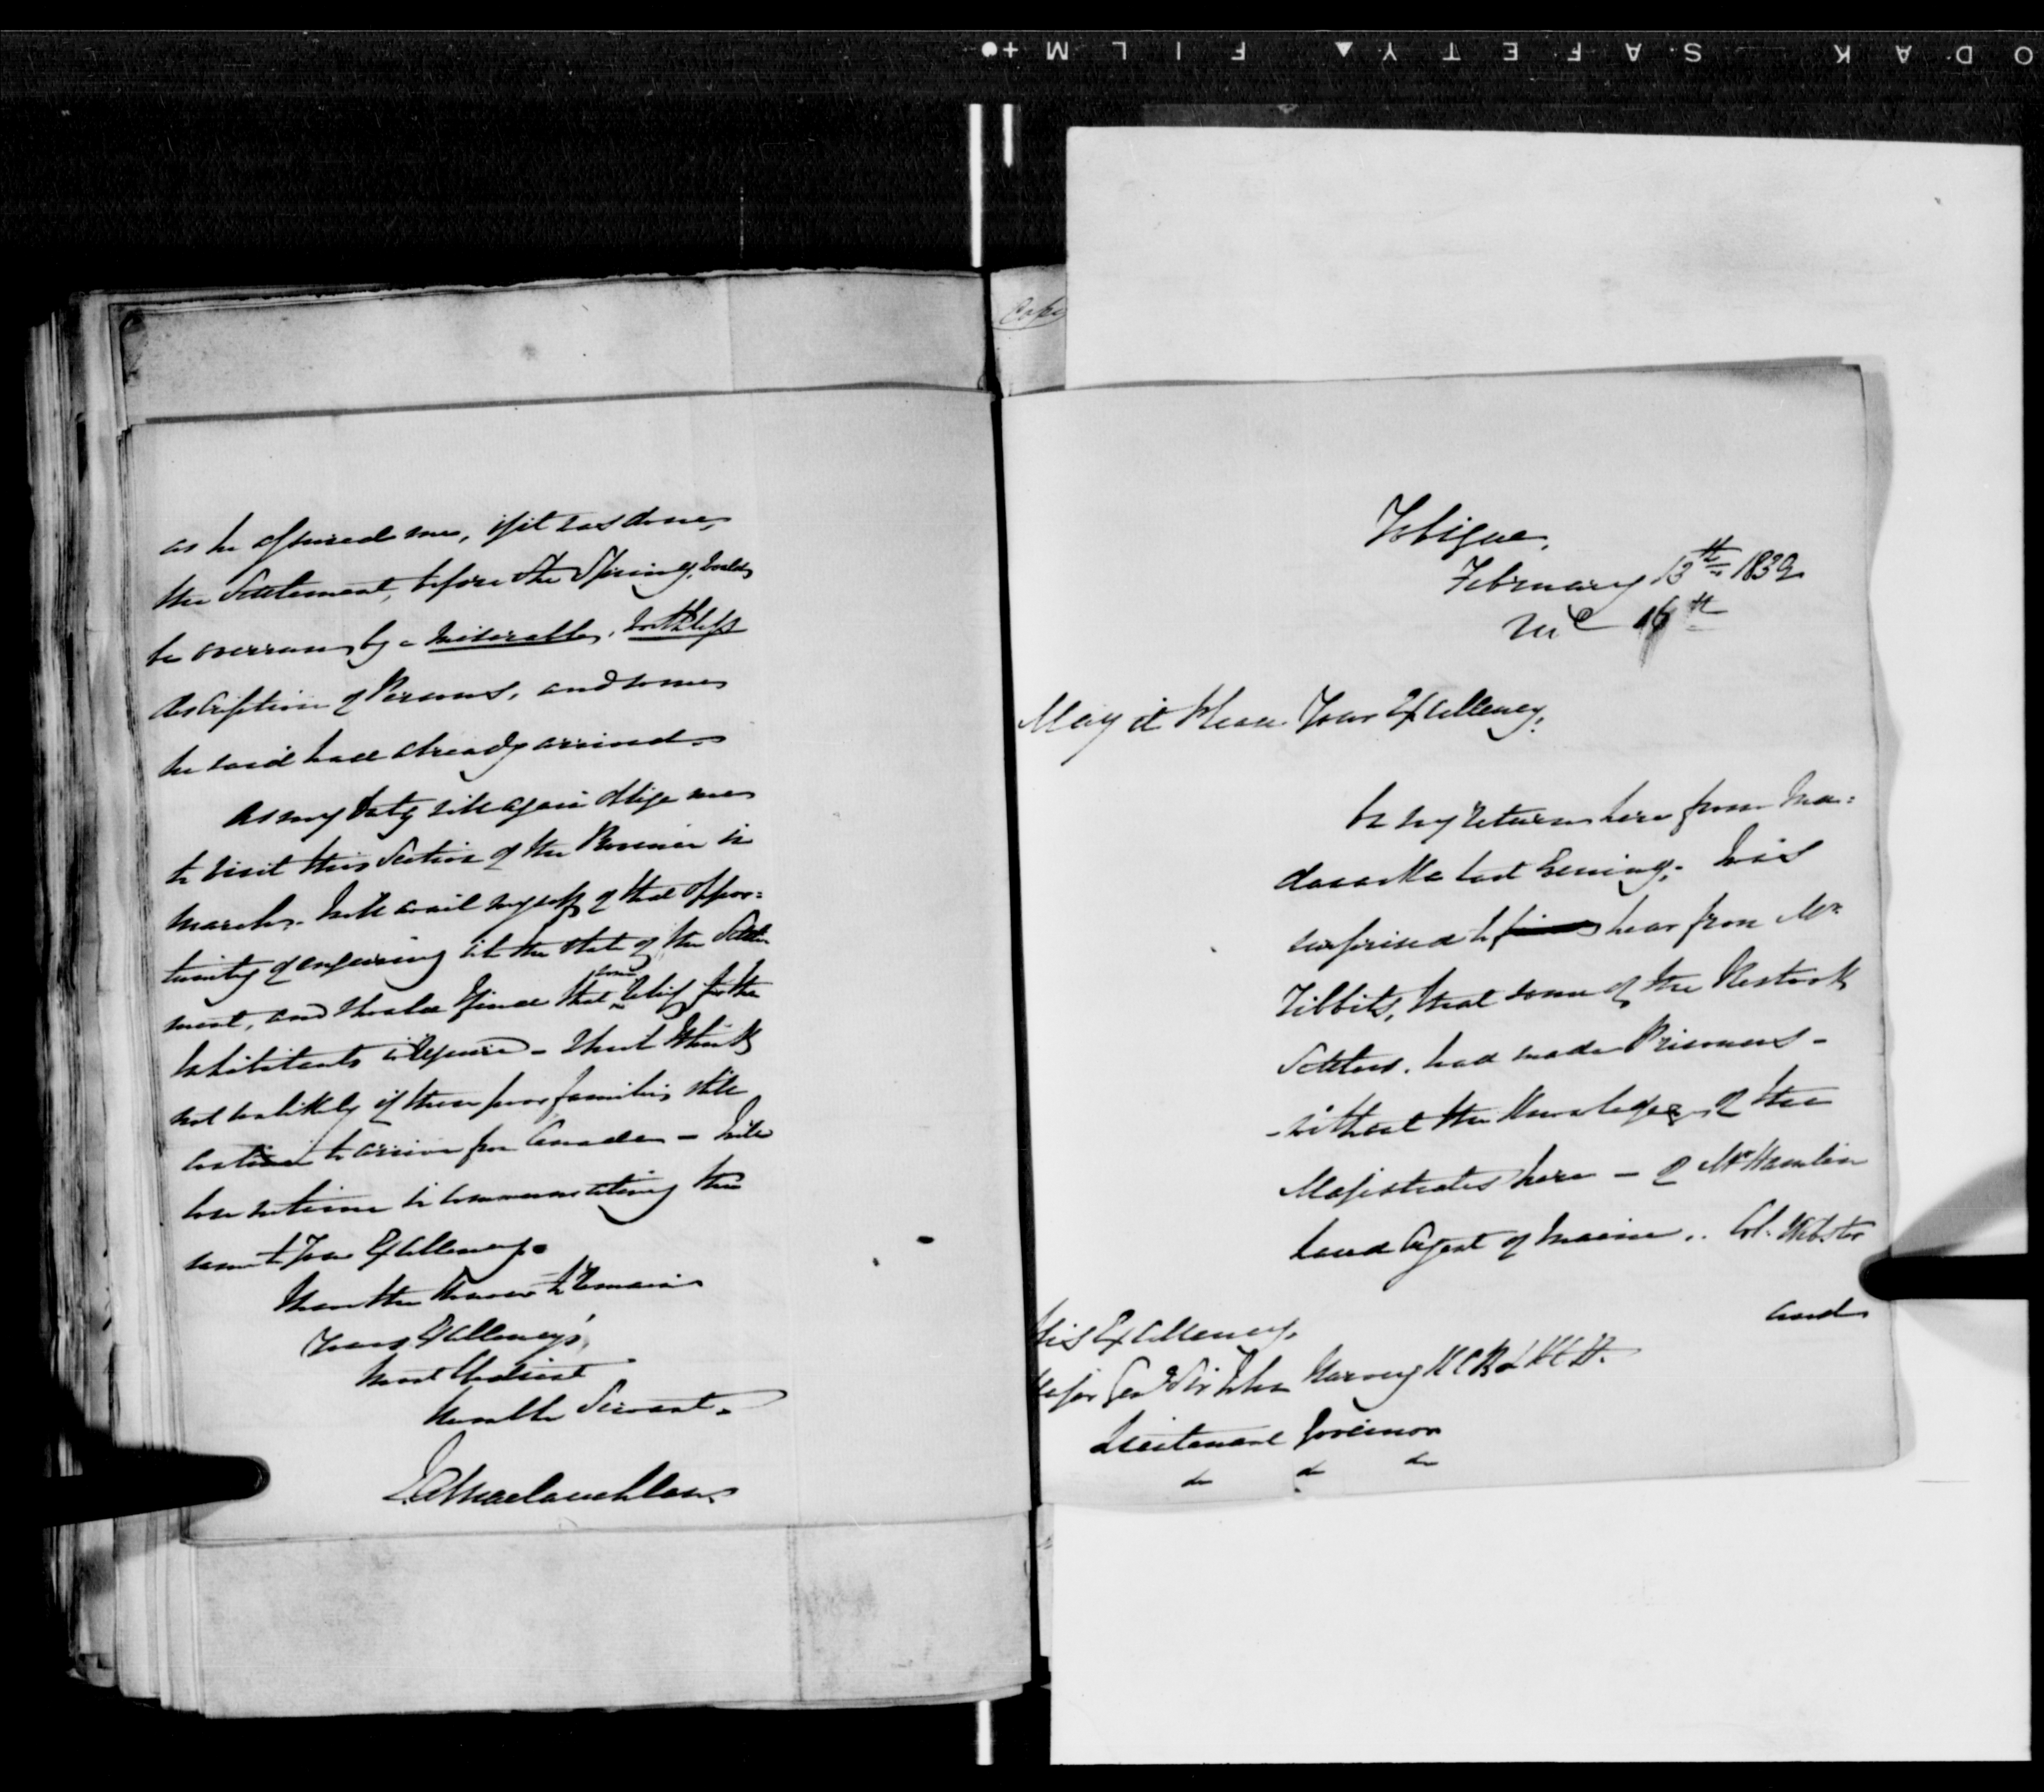 KODAK SAFETY FILM
as he assured me, if it was done,
the Settlement, before the Spring, would
be overrun by a miserable, worthless
description of Persons, and some
he said had already arrived.
As my duty will again oblige me
to visit this Section of the Province in
March. Will avail myself of that oppor=
tunity of enquiring into the state of the Settle
ment, and should I find that some relief for the
Inhabitants is required - which I think
not unlikely if these poor families still
continue to arrive from Canada - Will
lose no time in communicating the
same to Your Excellency.
I have the honor to remain
Your Excellency's,
Most Obedient
Humble Servant.
J.A. Maclauchlan.
Copy
Tobique,
February 13th 1839
16th
May it Please Your Excellency,
On my return here from Ma=
dawaska last Evening, was
surprised to hear from Mr
Tibbits, that some of the Restook
Settlers, had made Prisoners -
- without the Knowledge of the
Magistrates here - of Mr Hamlin
Land Agent of Maine, Col. Webster
and
His Excellency,
Major Genl Sir John Harvey K.C.B & K.C.H.
Lieutenant Governor
&c &c &c